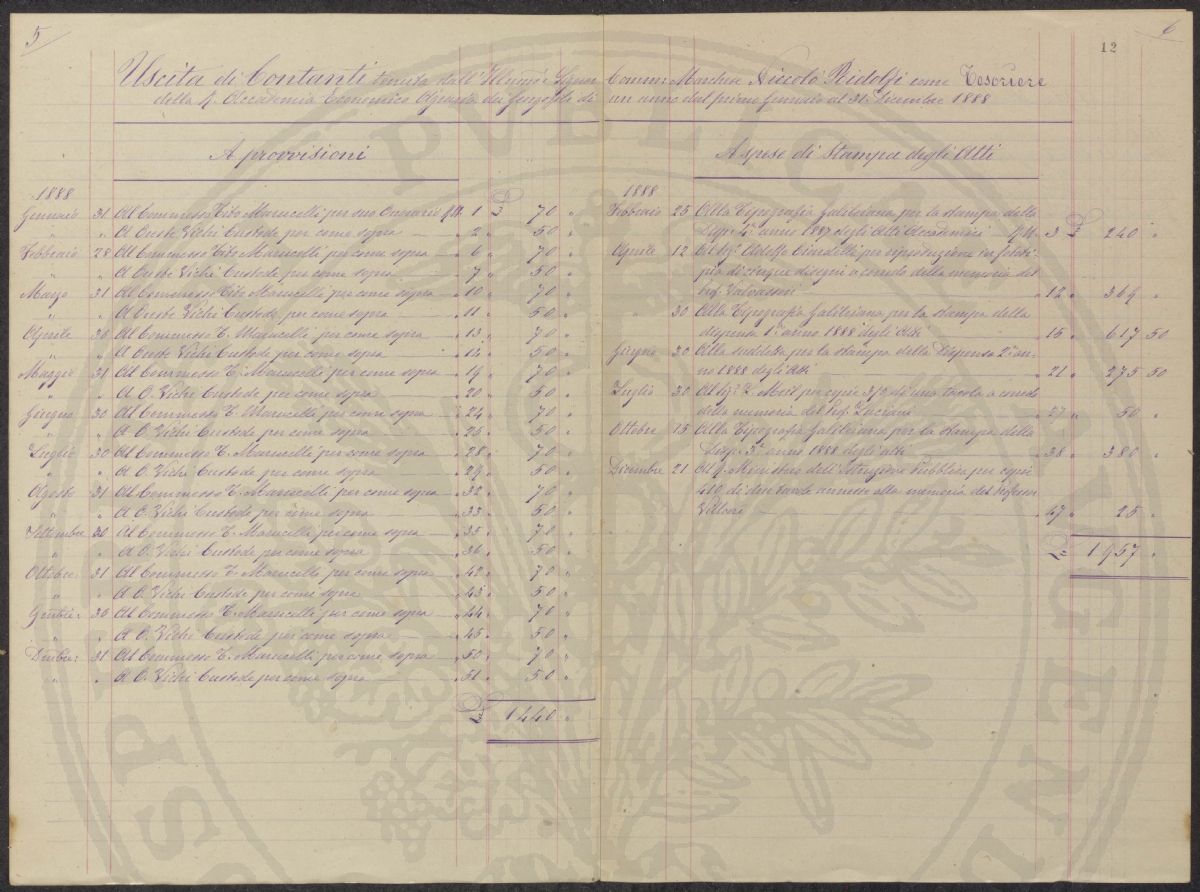 5
6
12
Uscita di Contanti tenuta dall' Illmo Signor Comm. Marchese Niccolò Ridolfi come Tesoriere
della R. Accademia Economico Agraria dei Georgofili di un anno dal primo Gennaio al 31 Dicembre 1888
A provvisioni
1888
Gennaio 31 Al Commesso Tito Marucelli per suo Onorario N. 1 £ 70 "
" " A Oreste Vichi Custode per come sopra — " 2 " 50 "
Febbraio 28 Al Commesso Tito Marucelli per come sopra — " 6 " 70 "
" " A Oreste Vichi Custode per come sopra — " 7 " 50 "
Marzo 31 Al Commesso Tito Marucelli per come sopra — " 10 " 70 "
" " A Oreste Vichi Custode per come sopra — " 11 " 50 "
Aprile 30 Al Commesso T. Marucelli per come sopra — " 13 " 70 "
" " A Oreste Vichi Custode per come sopra — " 14 " 50 "
Maggio 31 Al Commesso T. Marucelli per come sopra — " 19 " 70 "
" " A O. Vichi Custode per come sopra — " 20 " 50 "
Giugno 30 Al Commesso T. Marucelli per come sopra — " 24 " 70 "
" " A O. Vichi Custode per come sopra — " 25 " 50 "
Luglio 30 Al Commesso T. Marucelli per come sopra — " 28 " 70 "
" " A O. Vichi Custode per come sopra — " 29 " 50 "
Agosto 31 Al Commesso T. Marucelli per come sopra — " 32 " 70 "
" " A O. Vichi Custode per come sopra — " 33 " 50 "
Settembre 30 Al Commesso T. Marucelli per come sopra — " 35 " 70 "
" " A O. Vichi Custode per come sopra — " 36 " 50 "
Ottobre 31 Al Commesso T. Marucelli per come sopra — " 42 " 70 "
" " A O. Vichi Custode per come sopra — " 43 " 50 "
30 Al Commesso T. Marucelli per come sopra — " 44 " 70 "
" " A O. Vichi Custode per come sopra — " 45 " 50 "
31 Al Commesso T. Marucelli per come sopra — " 50 " 70 "
" " A O. Vichi Custode per come sopra — " 51 " 50 "
£ 1440 "
A spese di Stampa degli Atti
1888
Febbraio 25 Alla Tipografia Galileiana per la stampa della
Disp. 4a anno 1887 degli Atti Accademici N. 3 £ 240 "
Aprile 12 Al Sig. per riproduzione in
di cinque disegni a corredo della memoria del
Prof. Valvassori — " 12 " 369 "
" 30 Alla Tipografia Galileiana per la stampa della
dispensa 1a anno 1888 degli Atti — " 15 " 617 50
Giugno 30 Alla suddetta per la stampa della Dispensa 2a an-
no 1888 degli Atti — " 21 " 275 50
Luglio 30 Al Sig. per copie 370 di una tavola a corredo
della memoria del Prof. Luciani — " 27 " 50 "
Ottobre 15 Alla Tipografia Galileiana per la stampa della
Disp. 3a anno 1888 degli Atti — " 38 " 380 "
Dicembre 21 Al R. Ministero dell' Istruzione Pubblica per copie
410 di due tavole annesse alla memoria del Professor
— " 47 " 25 "
£ 1957 "
PVBLICAE